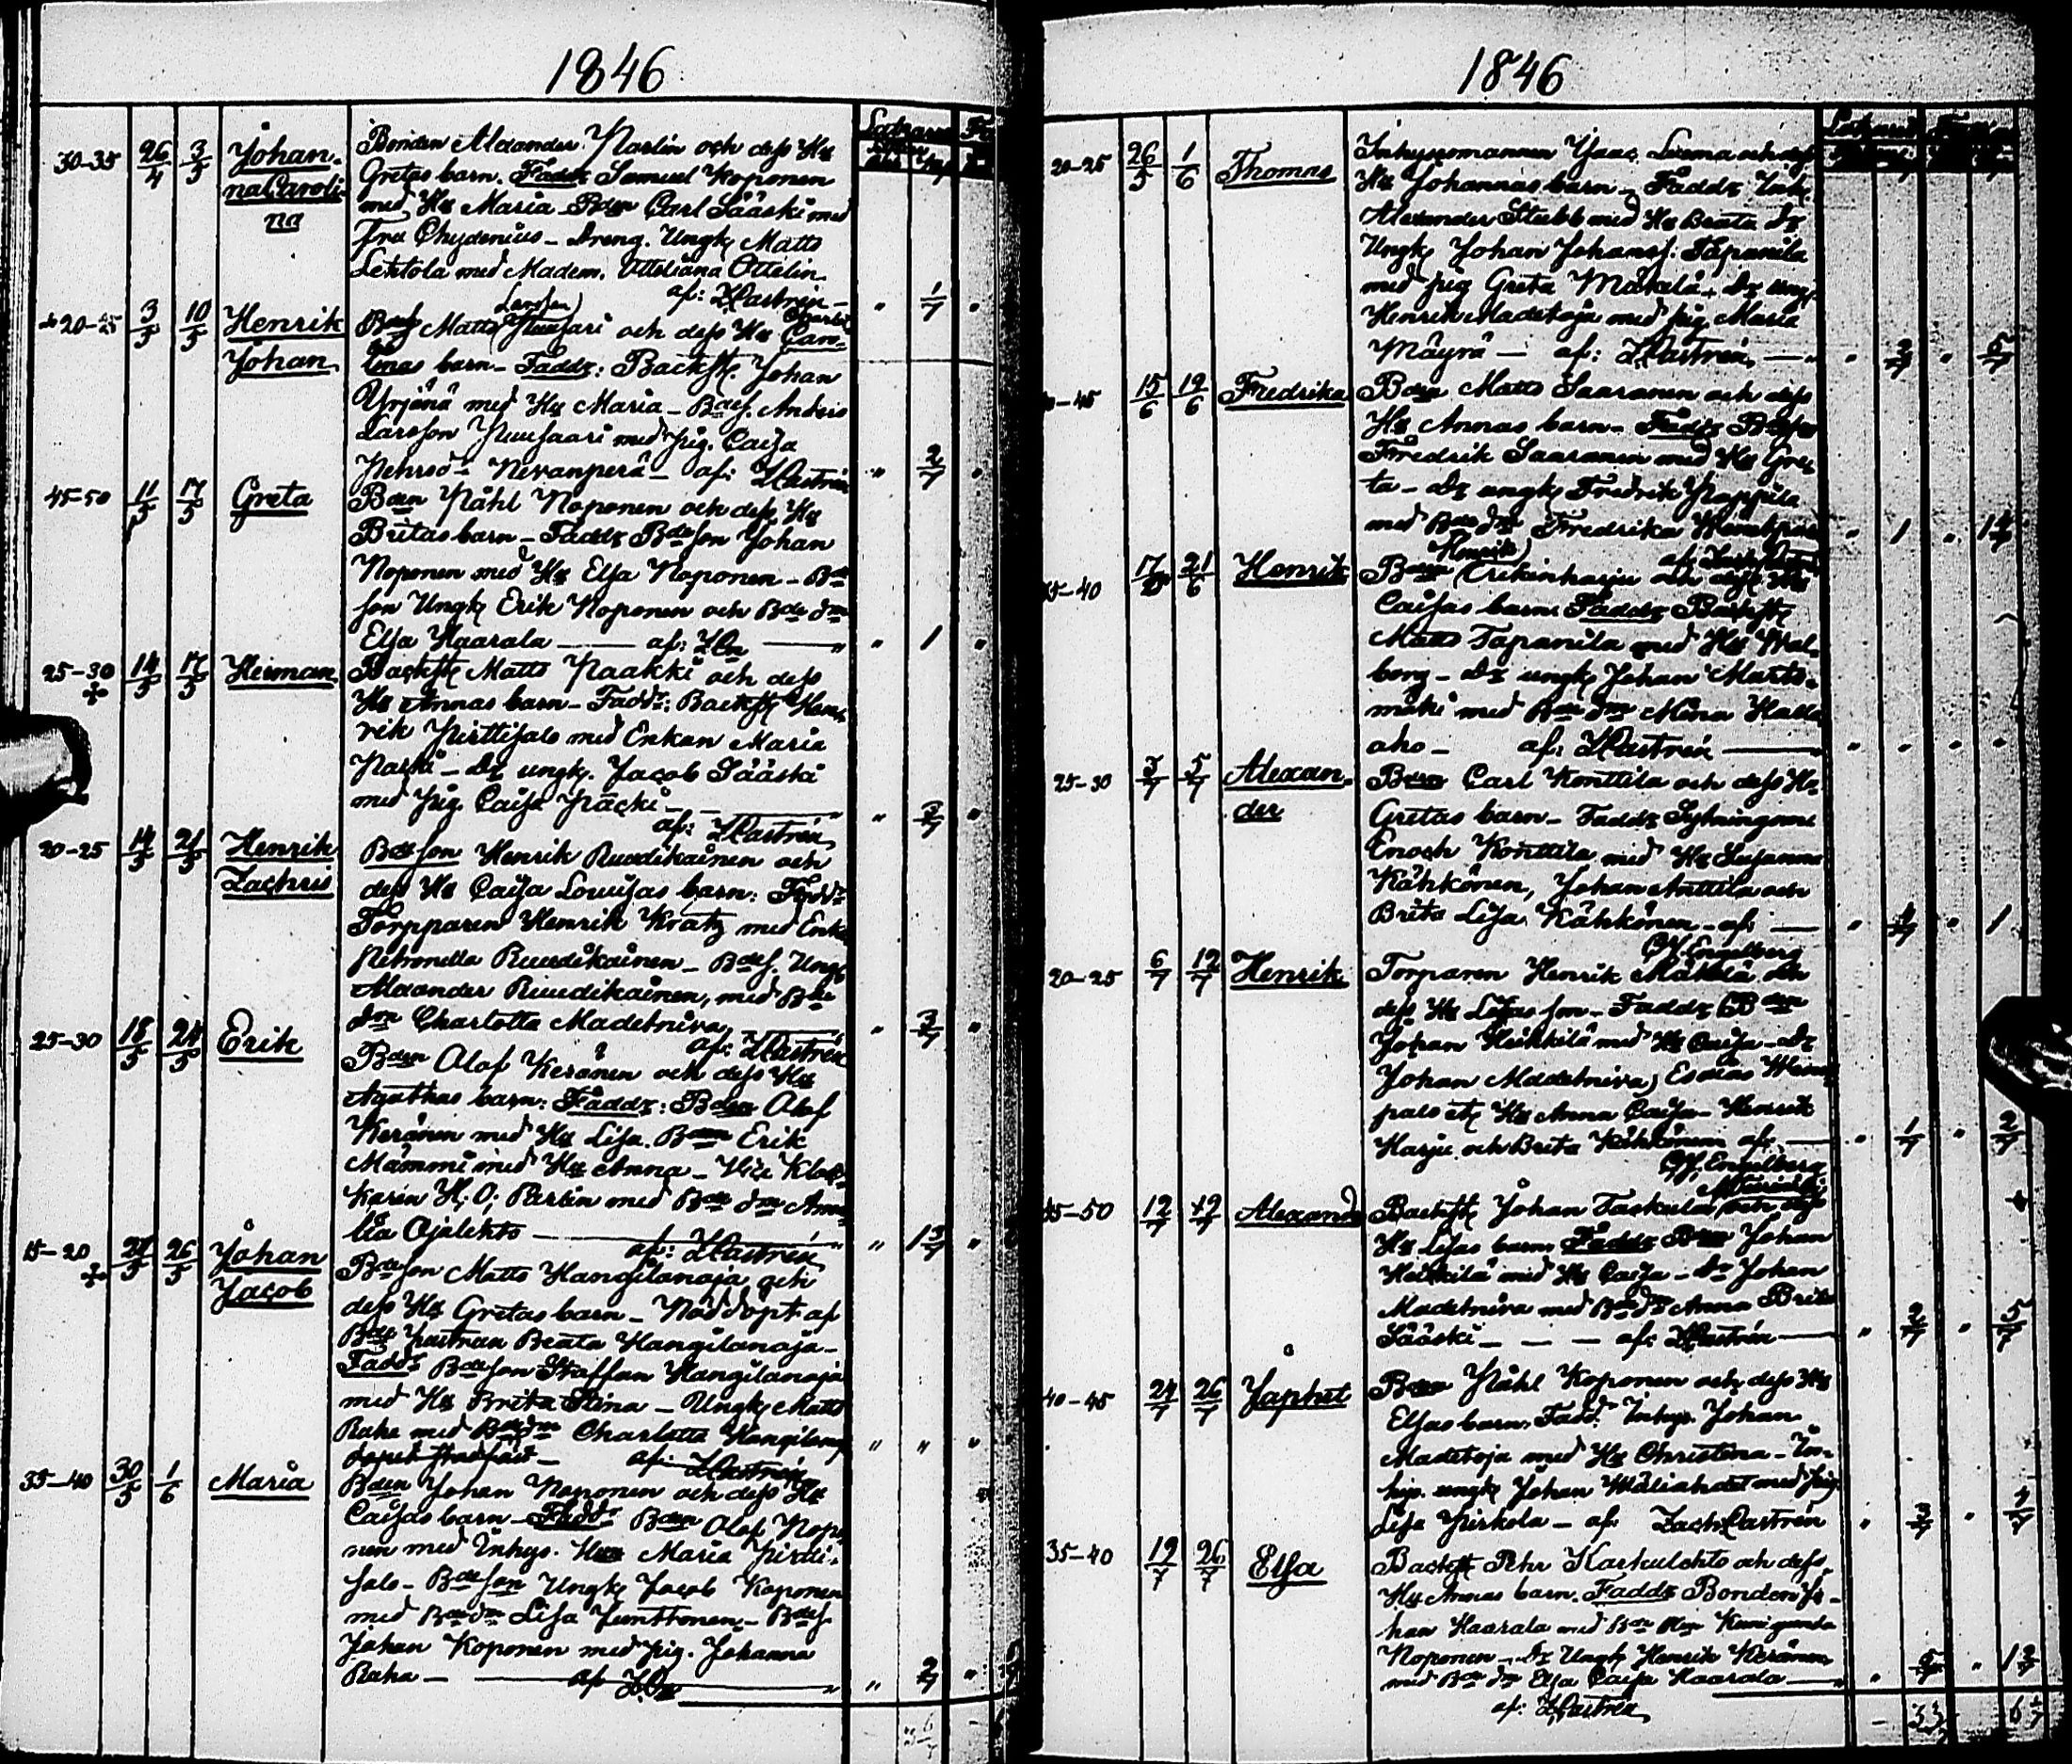 1846
30-35 26/4 3/5 Johan-
na Caroli
na
Bonden Alexander Parlin och dess Hu
Gretas barn. Fadd: Samuel Koponen
med Hu Maria Bden Carl Sääski med
Fru Chydenius - Dreng. Ungk Matts
Lehtola med Madem. Ottiliana Ottelin.
af: ZCastrén - " 1/7
20-25 3/5 10/5 Henrik
Johan
Matts Larsson Nuusari och dess Hu Caro-
linas barn - Fadd: Backstk. Johan
Yrjänä med Hu Maria - Bdes. Anders
Larsson Nuusaari med pig. Caisa
Nevanperä - af: ZCastrén " 2/7
45-50 11/5 17/5 Greta
Bden Påhl Noponen och dess Hu
Britas barn - Fadd Bdeson Johan
Noponen med Hu Elsa Noponen - Bde
son Ungk Erik Noponen och Bde dr
Elsa Haarala - af: ZCn - " 1
25-30 14/5 17/5 Herman
Backstk Matts Paakki och dess
Hu Annas barn - Fadd: Backstk Hen-
rik Pirttisalo med Enkan Maria
- Dr ungk. Jacob Sääski
med pig Caisa
af: ZCastrén " 2/7
20-25 14/5 21/5 Henrik
Zachris
Bdeson Henrik Ruudikainen och
dess Hu Caisa Lovisas barn: Fadd
Torpparen Henrik Kratz med Enk
Petronella Ruudikainen - Bdes. Ungk
Alexander Ruudikainen, med Bde
dr Charlotta Madetniva
af: ZCastrén " 3/7
25-30 18/5 24/5 Erik
Bden Olof Keränen och dess Hu
Agathas barn: Fadd: Bden Olof
Keränen med Hu Lisa. Bden Erik
Mämmi med Hu Anna - Vice Klock
karen H. O. Parlin med Bde dr Ama
lia Ojalehto
af: ZCastrén " 1 3/7
15-20 24/5 26/5 Johan
Jacob
Bdeson Matts Hangilanoja och
dess Hu Gretas barn - Nöddöpt af
Bde hustrun Beata Hangilanoja -
Fadd: Bdeson Staffan Hangilanoja
med Hu Brita Stina - Ungk Matts
Raha med Bdedr Charlotta Hangilanoja
af: ZCastrén " "
35-40 30/5 1/6 Maria
Bden Johan Noponen och dess Hu
Caisas barn - Fadd: Bden Olof Nopo
nen med Inhys. Hu Maria Pirtti-
salo - Bdeson Ungk Jacob Koponen
med Bdedr Lisa Junttonen - Bdes
Johan Koponen med pig. Johanna
Raha - af ZCn " 2/7
1846
20-25 26/5 1/6 Thomas
Inhysesmannen Isaac Luoma och dess
Hu Johannas barn - Fadd: Inh
Alexander Stubb med Hu Beata Dr
Ungk Johan Johanss. Tapanila
med pig Greta Mäkelä - Dr ung
Henrik Madetoja med pig Maria
Mäyrä - af: ZCastrén " 3/7 " 5/7
40-45 15/6 19/6 Fredrika
Bden Matts Saaranen och dess
Hu Annas barn - Fadd:
Fredrik Saaranen med Hu Gre
ta - Dr ungk Fredrik Pappila
med Bde dr Fredrika
" 1
35-40 21/6 Henrik
Bden Henrik Erikinharju och dess Hu
Caisas barn Fadd: Backstk
Matts Tapanila med Hu Wal-
borg - Dr ungk Johan Marto-
mäki med Bde dr Mina Halla
aho - af: ZCastrén
25-30 3/7 5/7 Alexan-
der
Bden Carl Konttila och dess Hu
Gretas barn - Fadd Sytningsm
Enoch Konttila med Hu Susanna
Kähkönen, Johan Anttila och
Brita Lisa Kähkönen - af:
Engelberg " 4/7 " 1
20-25 6/7 12/7 Henrik
Torparen Henrik Mäkelä och
dess Hu Lisas son - Fadd: Bden
Johan Heikkilä med Hu Caisa - Dr
Johan Madetniva, Esaias
palo etc Hu Anna Caisa - Henrik
Harju och Brita Kähkönen af:
Engelberg " 1/7 " 2/7
45-50 12/7 19/7 Alexand
Backstk Johan Taskula och dess
Hu Lisas barn Fadd: Bden Johan
Heikkilä med Hu Caisa - Dr Johan
Madetniva med Bdedr Anna Brita
Sääski - - - af: ZCastrén " 2/7 " 5/7
40-45 24/7 26/7 Japhet
Bden Påhl Koponen och dess Hu
Elsas barn. Fadd: Inhys. Johan
Madetoja med Hu Christina - In-
hys. ungk Johan Wäliahdet med pig
Lisa Pirkola - af Zach Castrén " 3/7 " 4/7
35-40 19/7 26/7 Elsa
Backstk Pehr Karkulehto och dess
Hu Annas barn. Fadd: Bonden Jo-
han Haarala med Bde Kunigunda
Noponen - Dr Ungk Henrik Keränen
med Bde dr Elsa Caisa Haarala - " 5/7 " 1 2/7
af: ZCastrén